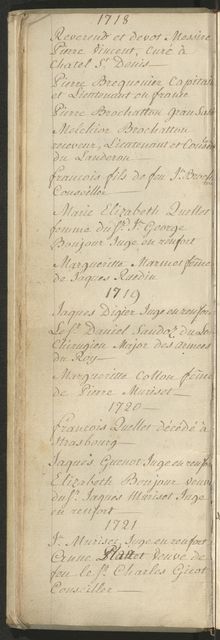 1718
Reverend et devos Messire
Pierre Vincent, curé à
Chatel St Denis
Pierre Brequenier Capitain
et Lieutenant en france
Pierre Brochatton Gran
Melchior Brochatton
receveur, Lieutenant et
du Landeron
francois fils de feu Js Broch
Conseiller
Marie Elizabeth Quellet
femme du Sr. Js George
Bonjour Juge en renfort
Marguerite Marmet feme
de Jaques Ruedin
1719
Jaques Digier Juge en renfort
Le Sr Daniel Sandoz du
Chirugien Major des armees
du Roy
Marguerite Collon feme
de Pierre Muriset
1720
francois Quellet décédé à
Strasbourg
Jaques Guenot Juge en renfort
Elizabeth Bonjour veuve
du Sr. Jaques Muriset Juge
en renfort
1721
Js. Muriset Juge en renfort
Cunne Plattet veuve de
feu le Sr. Charles Gicot
Conseiller